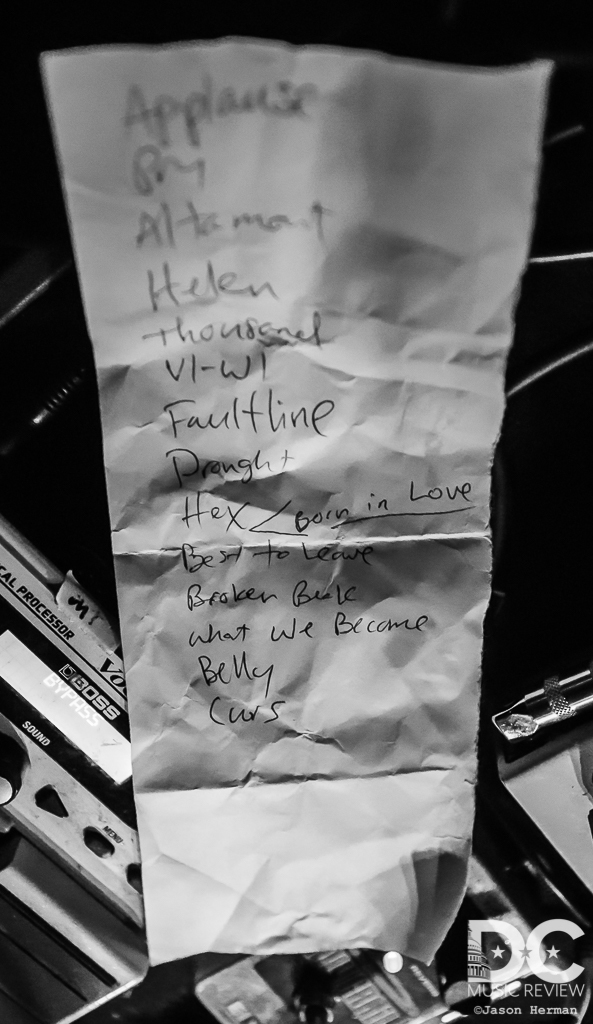 Applause
Pry
Altamont
Helen
Thousand
VI-WI
Faultline
Draught
Hex < Born in Love
Best to Leave
Broken Beak
What We Become
Belly
Curs
CAL PROCESSOR
VO
BOSS
BYPASS
SOUND
MENU
DC
MUSIC REVIEW
©Jason Herman